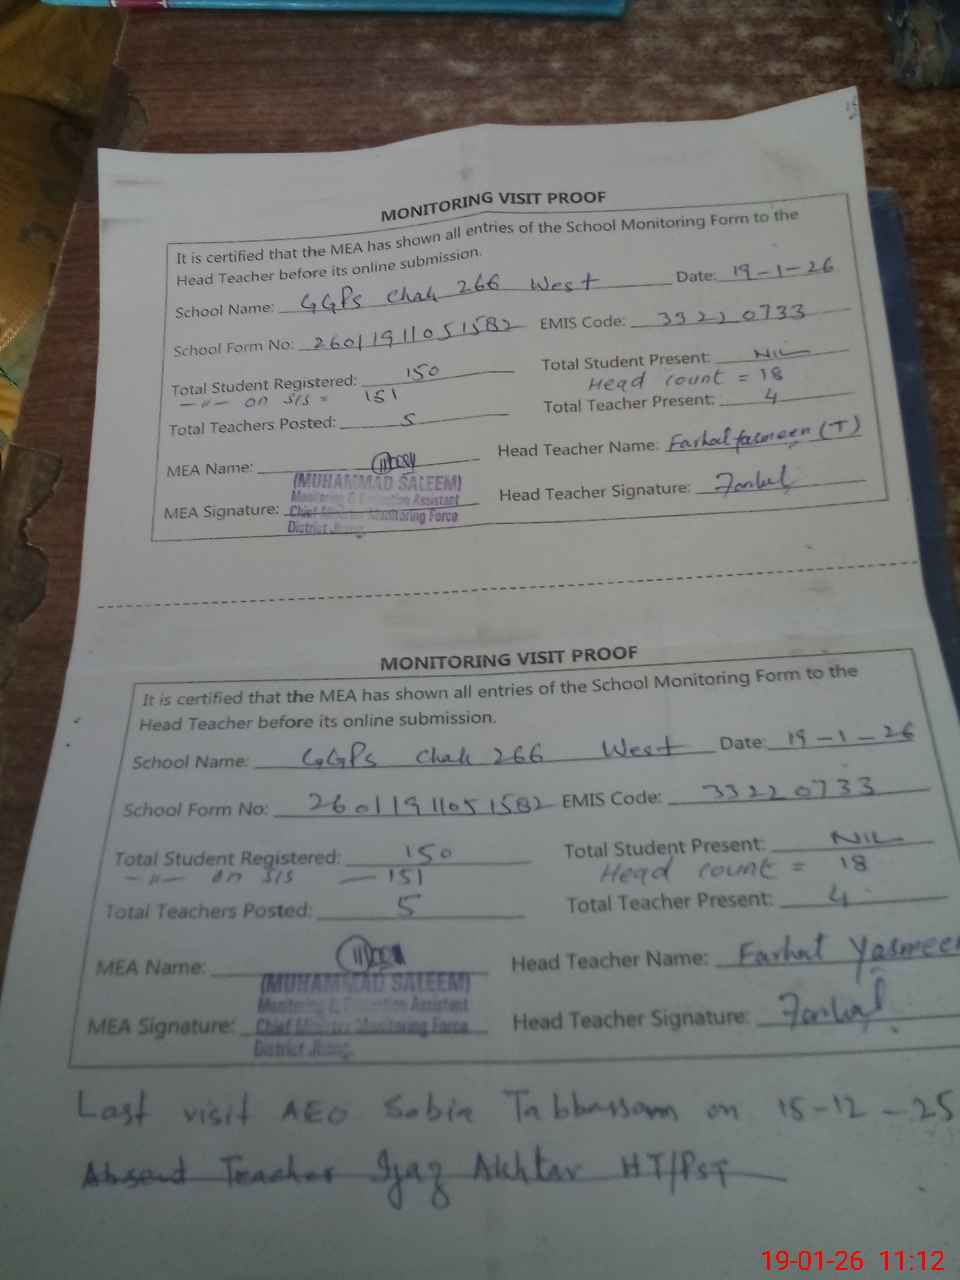 MONITORING VISIT PROOF
It is certified that the MEA has shown all entries of the School Monitoring Form to the
Head Teacher before its online submission.
School Name: GGPS Chak 266 West Date: 19-1-26
School Form No: 26011911051582 EMIS Code: 33220733
Total Student Registered: 150 Total Student Present: NIL
—"— on SIS = 151 Head count = 18
Total Teachers Posted: 5 Total Teacher Present: 4
MEA Name: Head Teacher Name: Farhat Yasmeen (T)
(MUHAMMAD SALEEM)
Monitoring & Evaluation Assistant
MEA Signature: Chief Minister Monitoring Force Head Teacher Signature: Farhat
District Jhang
MONITORING VISIT PROOF
It is certified that the MEA has shown all entries of the School Monitoring Form to the
Head Teacher before its online submission.
School Name: GGPS Chak 266 West Date: 19-1-26
School Form No: 26011911051582 EMIS Code: 33220733
Total Student Registered: 150 Total Student Present: NIL
—"— on SIS — 151 Head count = 18
Total Teachers Posted: 5 Total Teacher Present: 4
MEA Name: Head Teacher Name: Farhat Yasmee
(MUHAMMAD SALEEM)
Monitoring & Evaluation Assistant
MEA Signature: Chief Minister Monitoring Force Head Teacher Signature: Farhat
District Jhang.
Last visit AEO Sobia Tabbassam on 15-12-25
Absend Teacher Ijaz Akhtar HT/PST
19-01-26 11:12